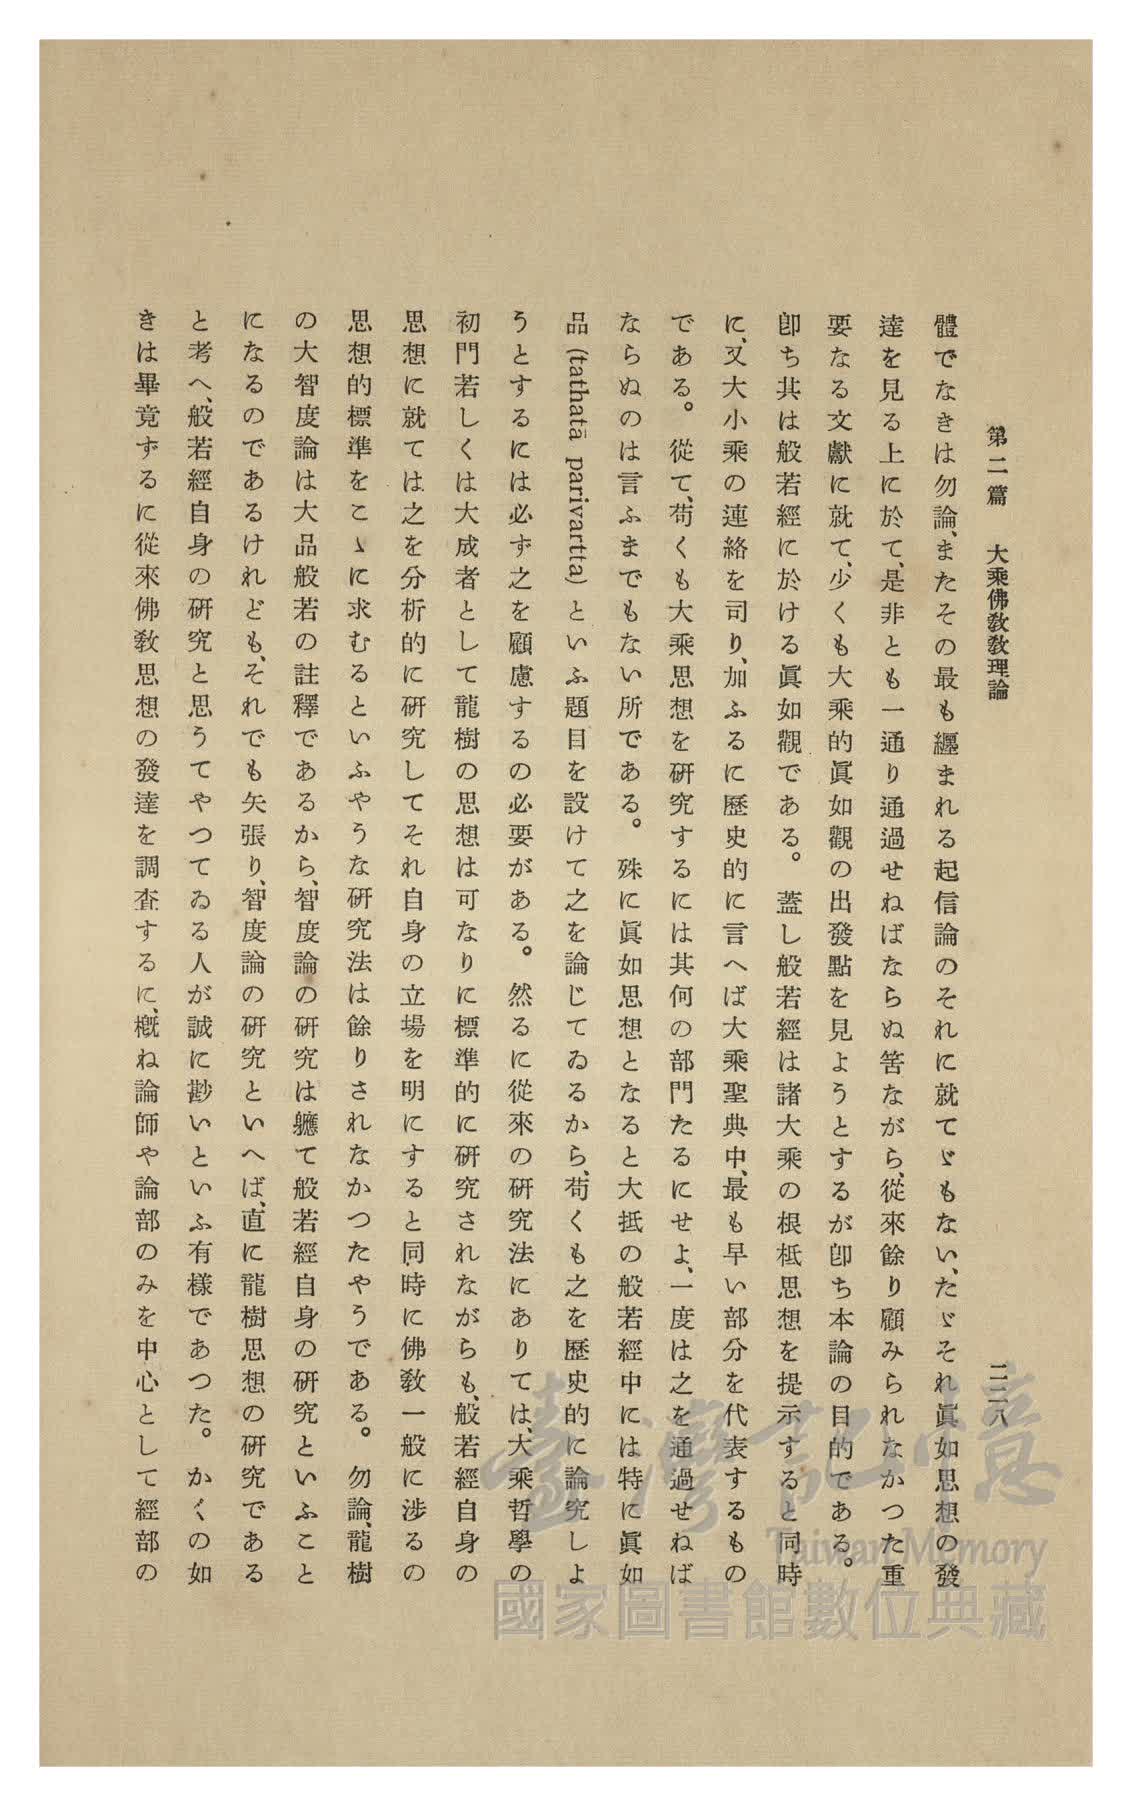 第二篇　大乘佛敎敎理論
二二八
體でなきは勿論、またその最も纒まれる起信論のそれに就てゞもない、たゞそれ眞如思想の發
達を見る上に於て、是非とも一通り通過せねばならぬ筈ながら、從來餘り顧みられなかつた重
要なる文獻に就て、少くも大乘的眞如觀の出發點を見ようとするが卽ち本論の目的である。
卽ち其は般若經に於ける眞如觀である。蓋し般若經は諸大乘の根柢思想を提示すると同時
に、又大小乘の連絡を司り、加ふるに歷史的に言へば大乘聖典中、最も早い部分を代表するもの
である。從て、苟くも大乘思想を硏究するには其何の部門たるにせよ、一度は之を通過せねば
ならぬのは言ふまでもない所である。殊に眞如思想となると大抵の般若經中には特に眞如
品 (tathatā parivartta) といふ題目を設けて之を論じてゐるから、苟くも之を歷史的に論究しよ
うとするには必ず之を顧慮するの必要がある。然るに從來の硏究法にありては、大乘哲學の
初門若しくは大成者として龍樹の思想は可なりに標準的に硏究されながらも、般若經自身の
思想に就ては之を分析的に硏究してそれ自身の立場を明にすると同時に佛敎一般に涉るの
思想的標準をこゝに求むるといふやうな硏究法は餘りされなかつたやうである。勿論、龍樹
の大智度論は大品般若の註釋であるから、智度論の硏究は軈て般若經自身の硏究といふこと
になるのであるけれども、それでも矢張り、智度論の硏究といへば、直に龍樹思想の硏究である
と考へ、般若經自身の硏究と思うてやつてゐる人が誠に尠いといふ有樣であつた。かくの如
きは畢竟ずるに從來佛敎思想の發達を調査するに、槪ね論師や論部のみを中心として經部の
臺灣記憶
Taiwan Memory
國家圖書館數位典藏